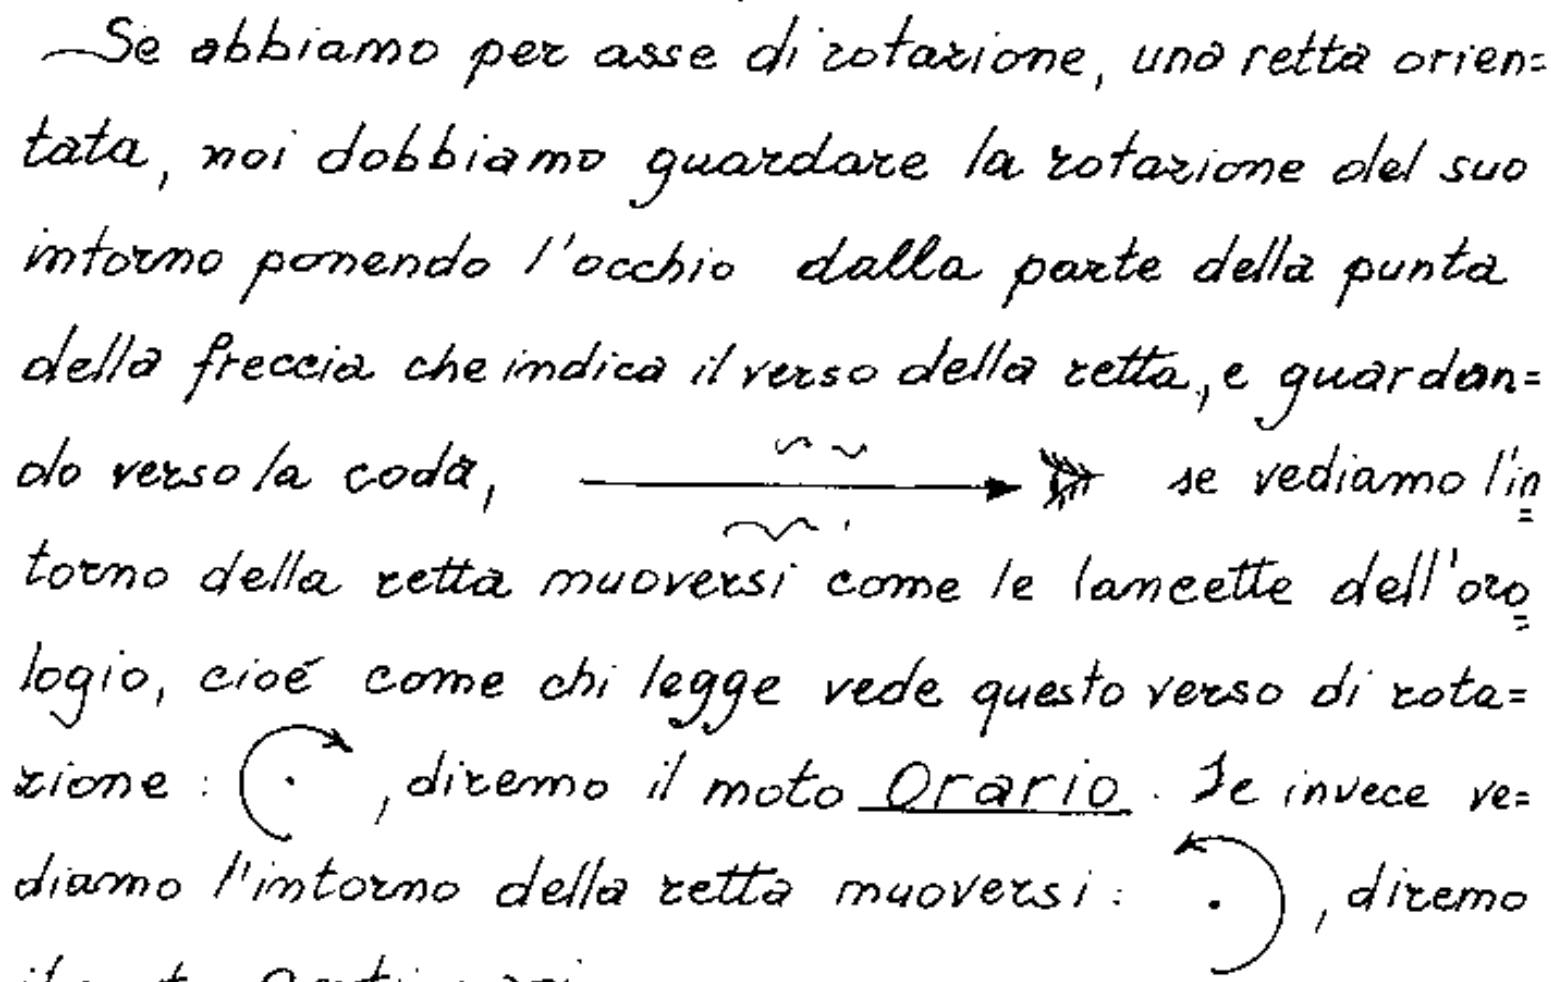 Se abbiamo per asse di rotazione, una retta orien=
tata, noi dobbiamo guardare la rotazione del suo
intorno ponendo l'occhio dalla parte della punta
della freccia che indica il verso della retta, e guardan=
do verso la coda, se vediamo l'in=
torno della retta muoversi come le lancette dell'oro=
logio, cioé come chi legge vede questo verso di rota=
zione: , diremo il moto Orario. Se invece ve=
diamo l'intorno della retta muoversi: , diremo